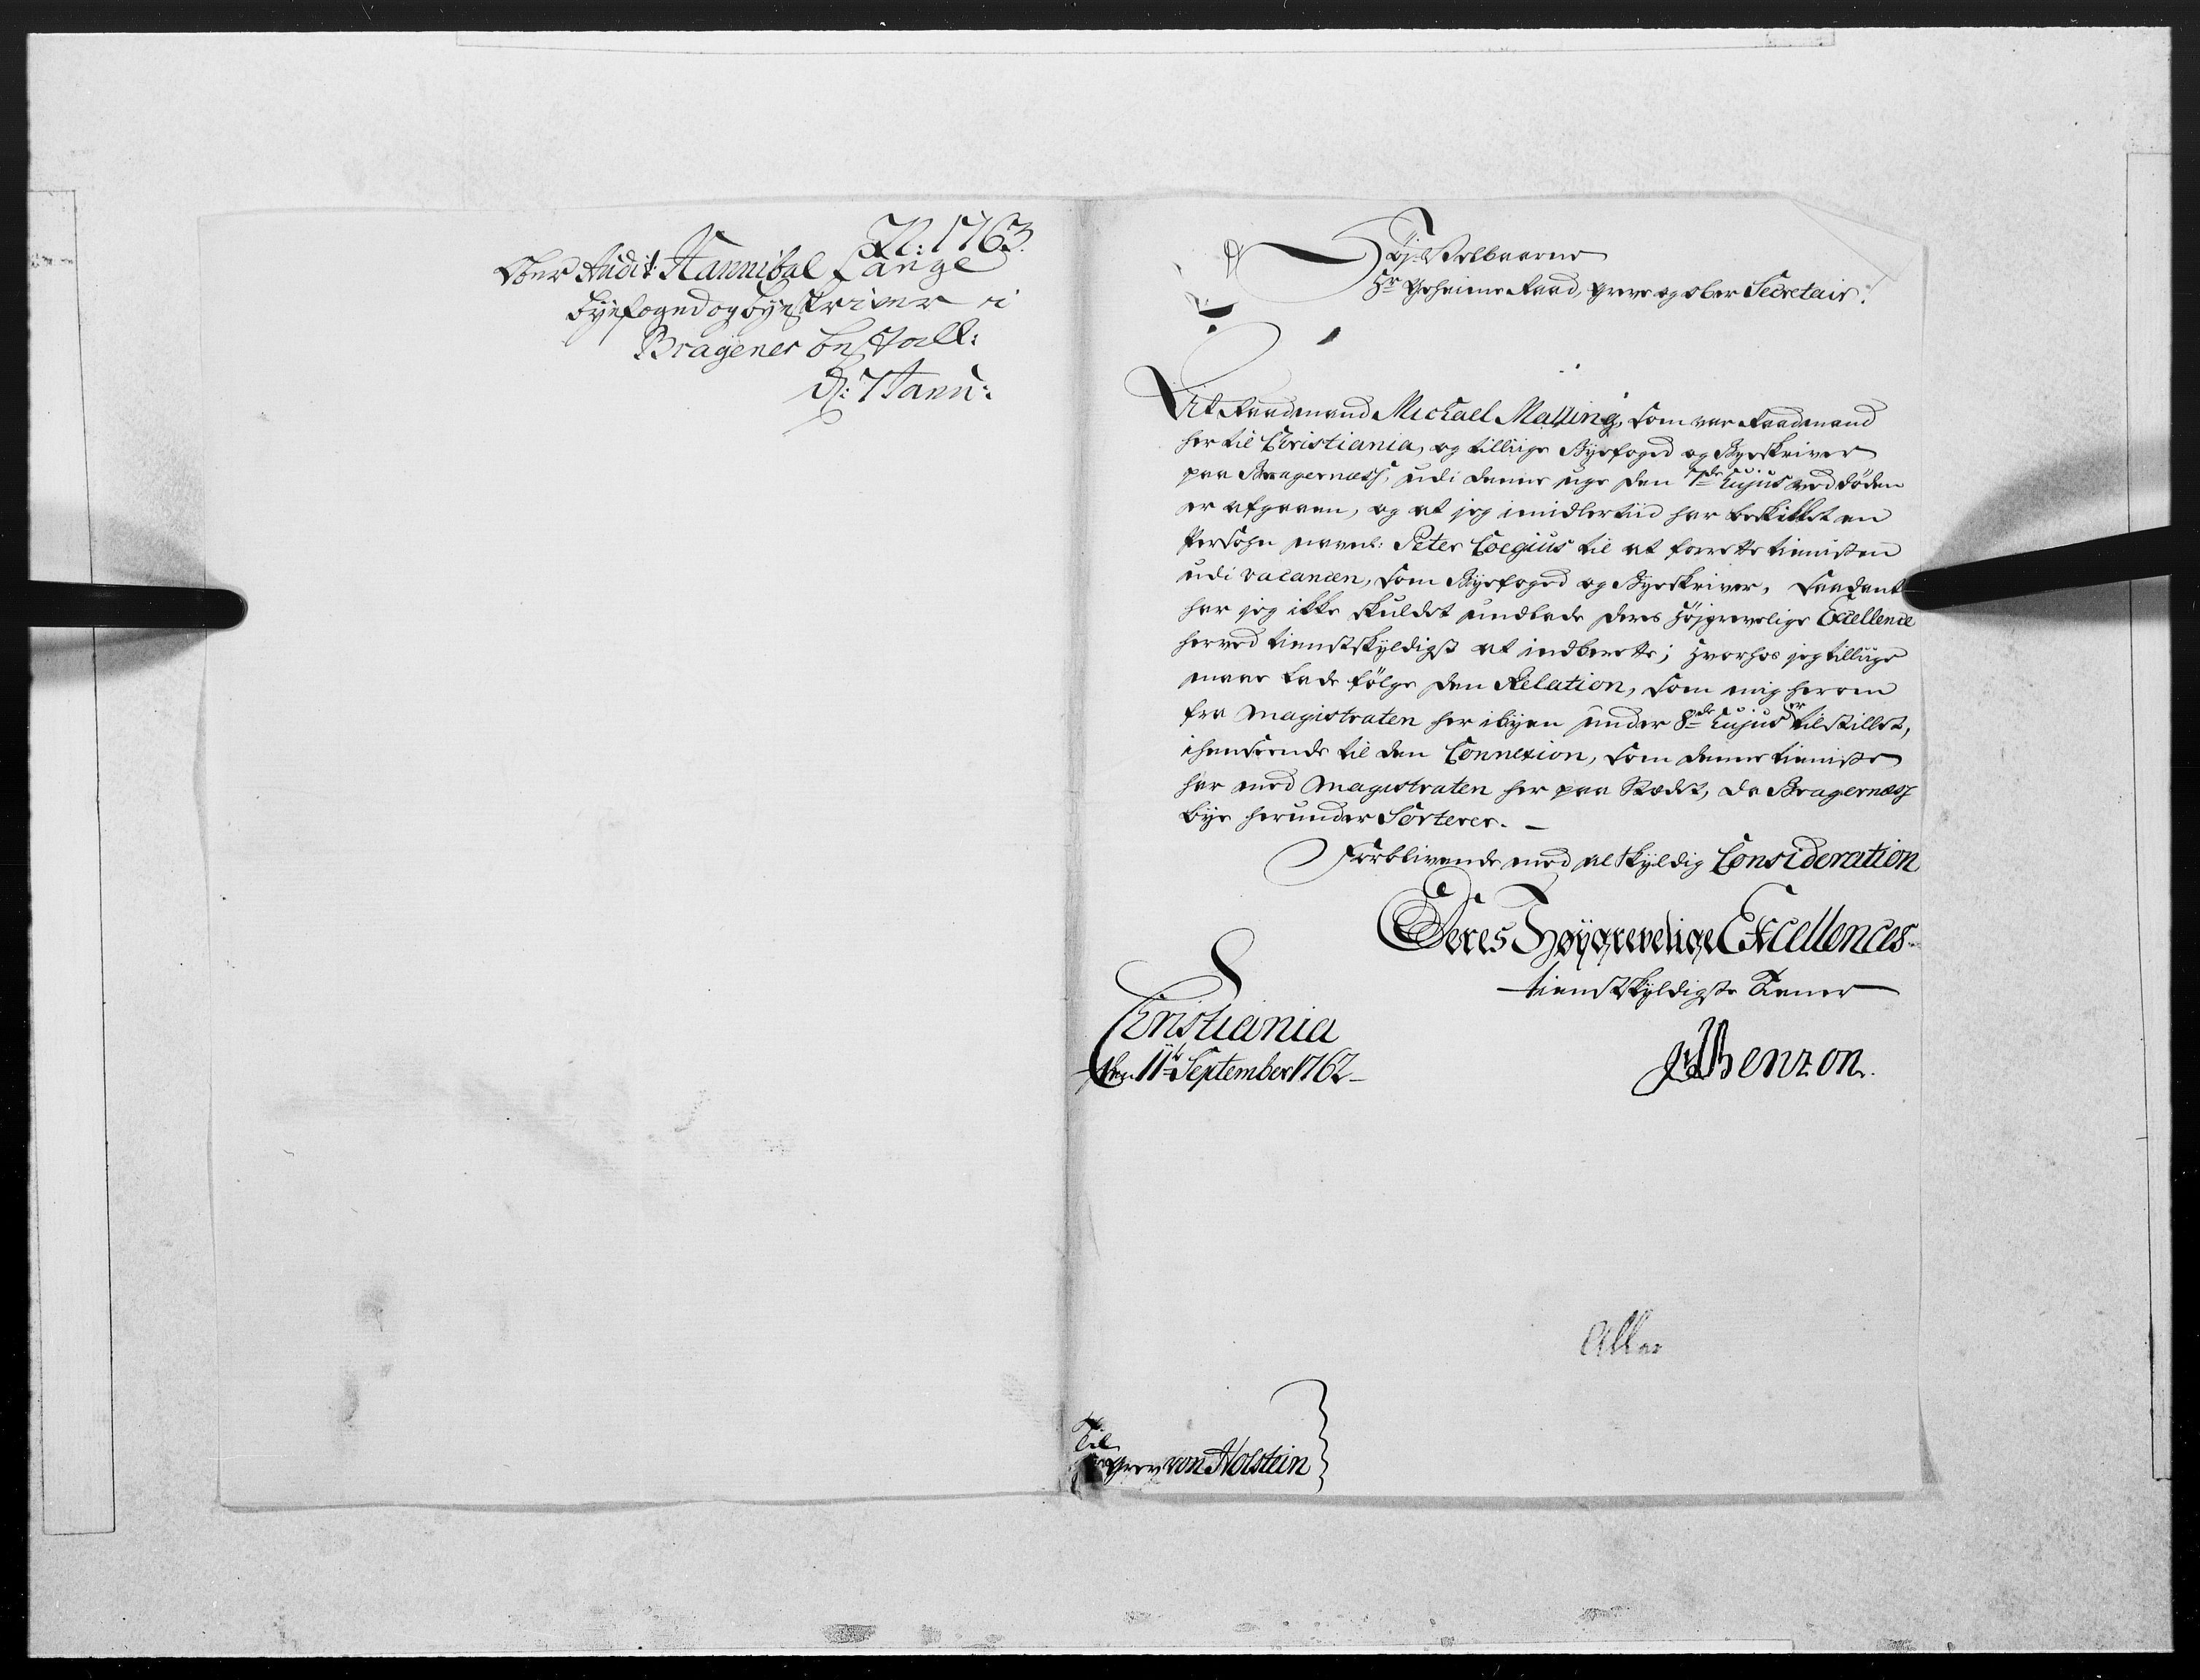 N: 1763.
Over Audit: Hannibal Lange
Byefoged og Byeskriver i
Bragenes bestall:
d: 7 Janu:
Höj-Velbaarne
Hr Geheime Raad, Greve og ober Secretair!
At Raadmand Michael Malling, som var Raadmand
her til Christiania, og tilliige Byefoged og Byeskriver
paa Bragernæss, udi denne uge den 7de hujus ved döden
er afgaaen, og at jeg imidlertiid har beskikket en
Persohn navnl: Peter Coegius til at forrette tienisten
udi vacancen, som Byefoged og Byeskriver, saadant
har jeg ikke skuldet undlade Deres Höjgrevelige Excellence
herved tienstskyldigst at indberette; hvorhos jeg tilliige
maae lade fölge den Relation, som mig herom
fra Magistraten her i byen under 8de hujus er tilstillet,
i henseende til den Connexion, som denne tieniste
har med Magistraten her paa Stædet, da Bragernæss
bye herunder Sorterer. –
Forblivende med al skyldig Consideration
Deres Høygrevelige Excellences
tienstskyldigste Tiener
Christiania
den 11te September 1762
JvBenzon.
Til
Greve von Holstein